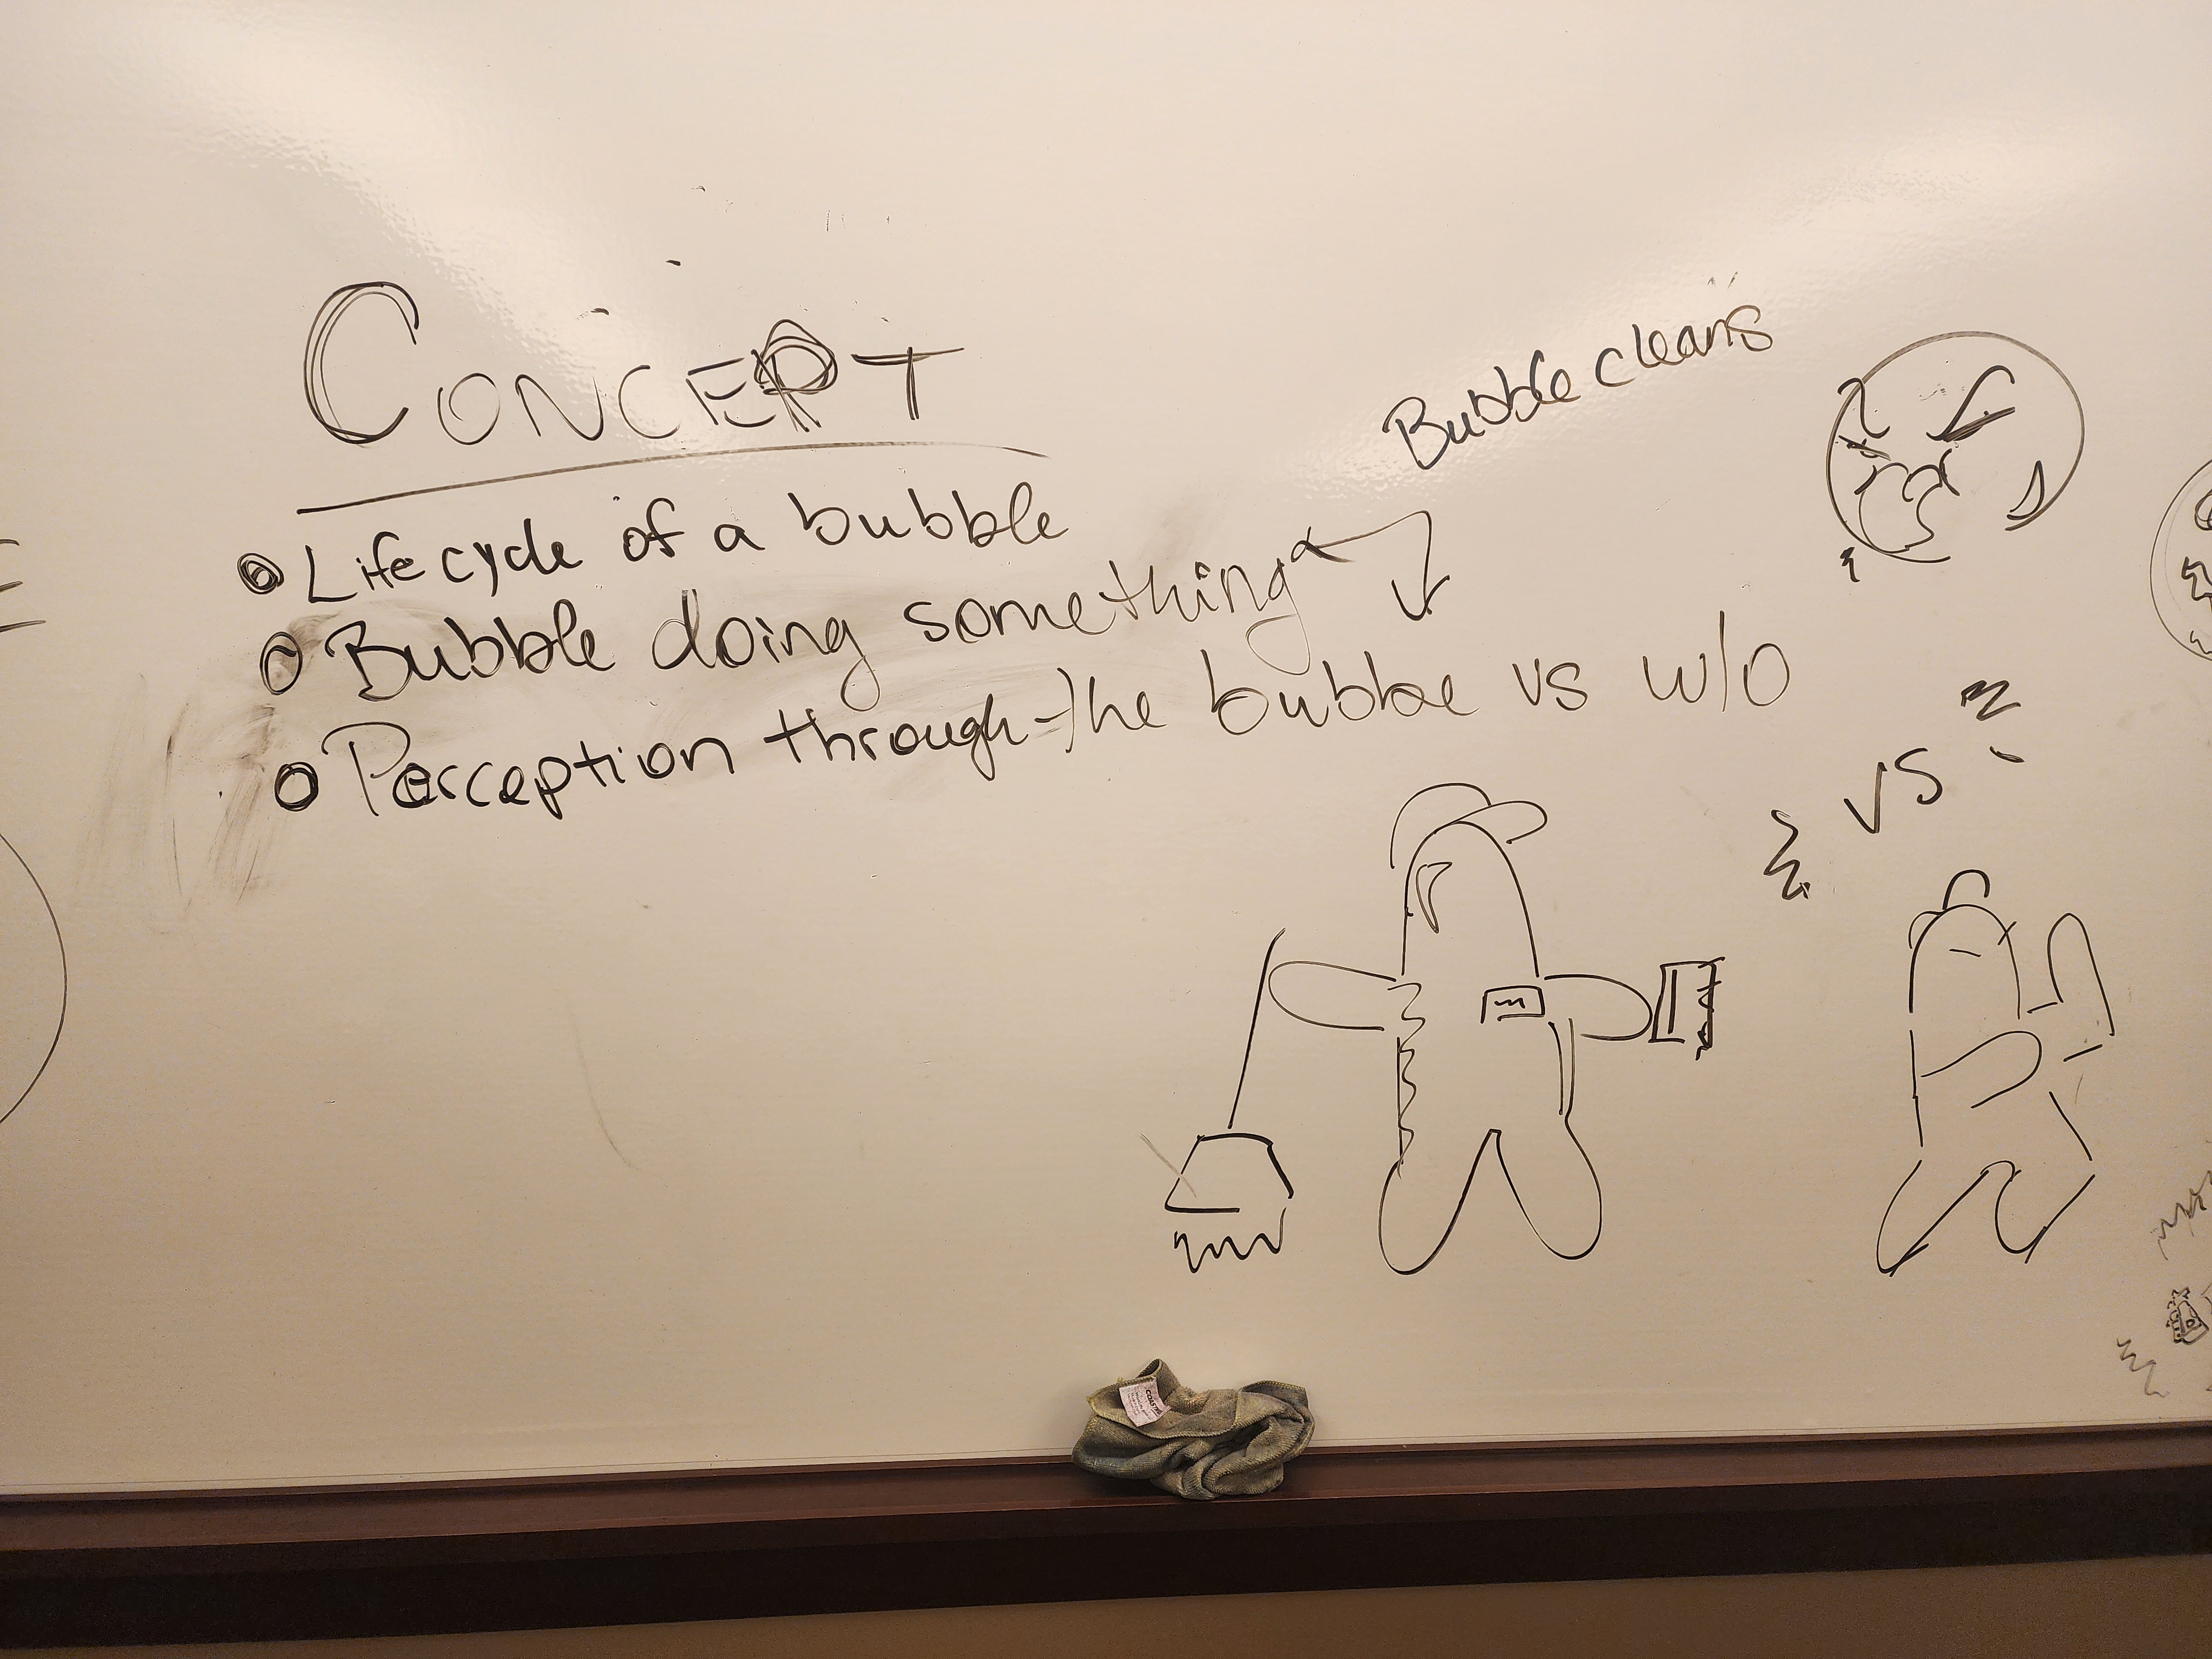 CONCEPT
Lifecycle of a bubble
Bubble doing something
Perception through the bubble vs w/o
Bubble cleans
vs